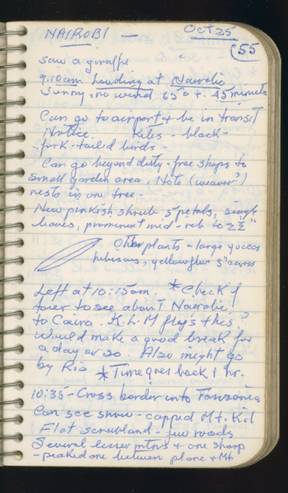 NAIROBI — Oct 25
55
saw a giraffe
9:10am Landing at Nairobi
Sunny, no wind 65° F. 45 minute
Can go to airport & be in transit
Notice. Kites - black -
fork-tailed birds.
Can go beyond duty-free shops to
small garden area. Note (weaver?)
nests in one tree.
New pinkish shrub 5 petals, single
leaves, prominent mid-rib to 2½"
Other plants - large yucca
hibiscus, yellow flwr 5" across
Left at 10:15am. * Check
tour to see about Nairobi
to Cairo. K.L.M flys this.
Would make a good break for
a day or so. Also might go
by Rio * Time goes back 1 hr.
10:35 - Cross border into Tanzania
Can see snow-capped Mt. Kil
Flat scrubland - few roads
Several lesser mtns & one sharp
-peaked one between plane & Mt